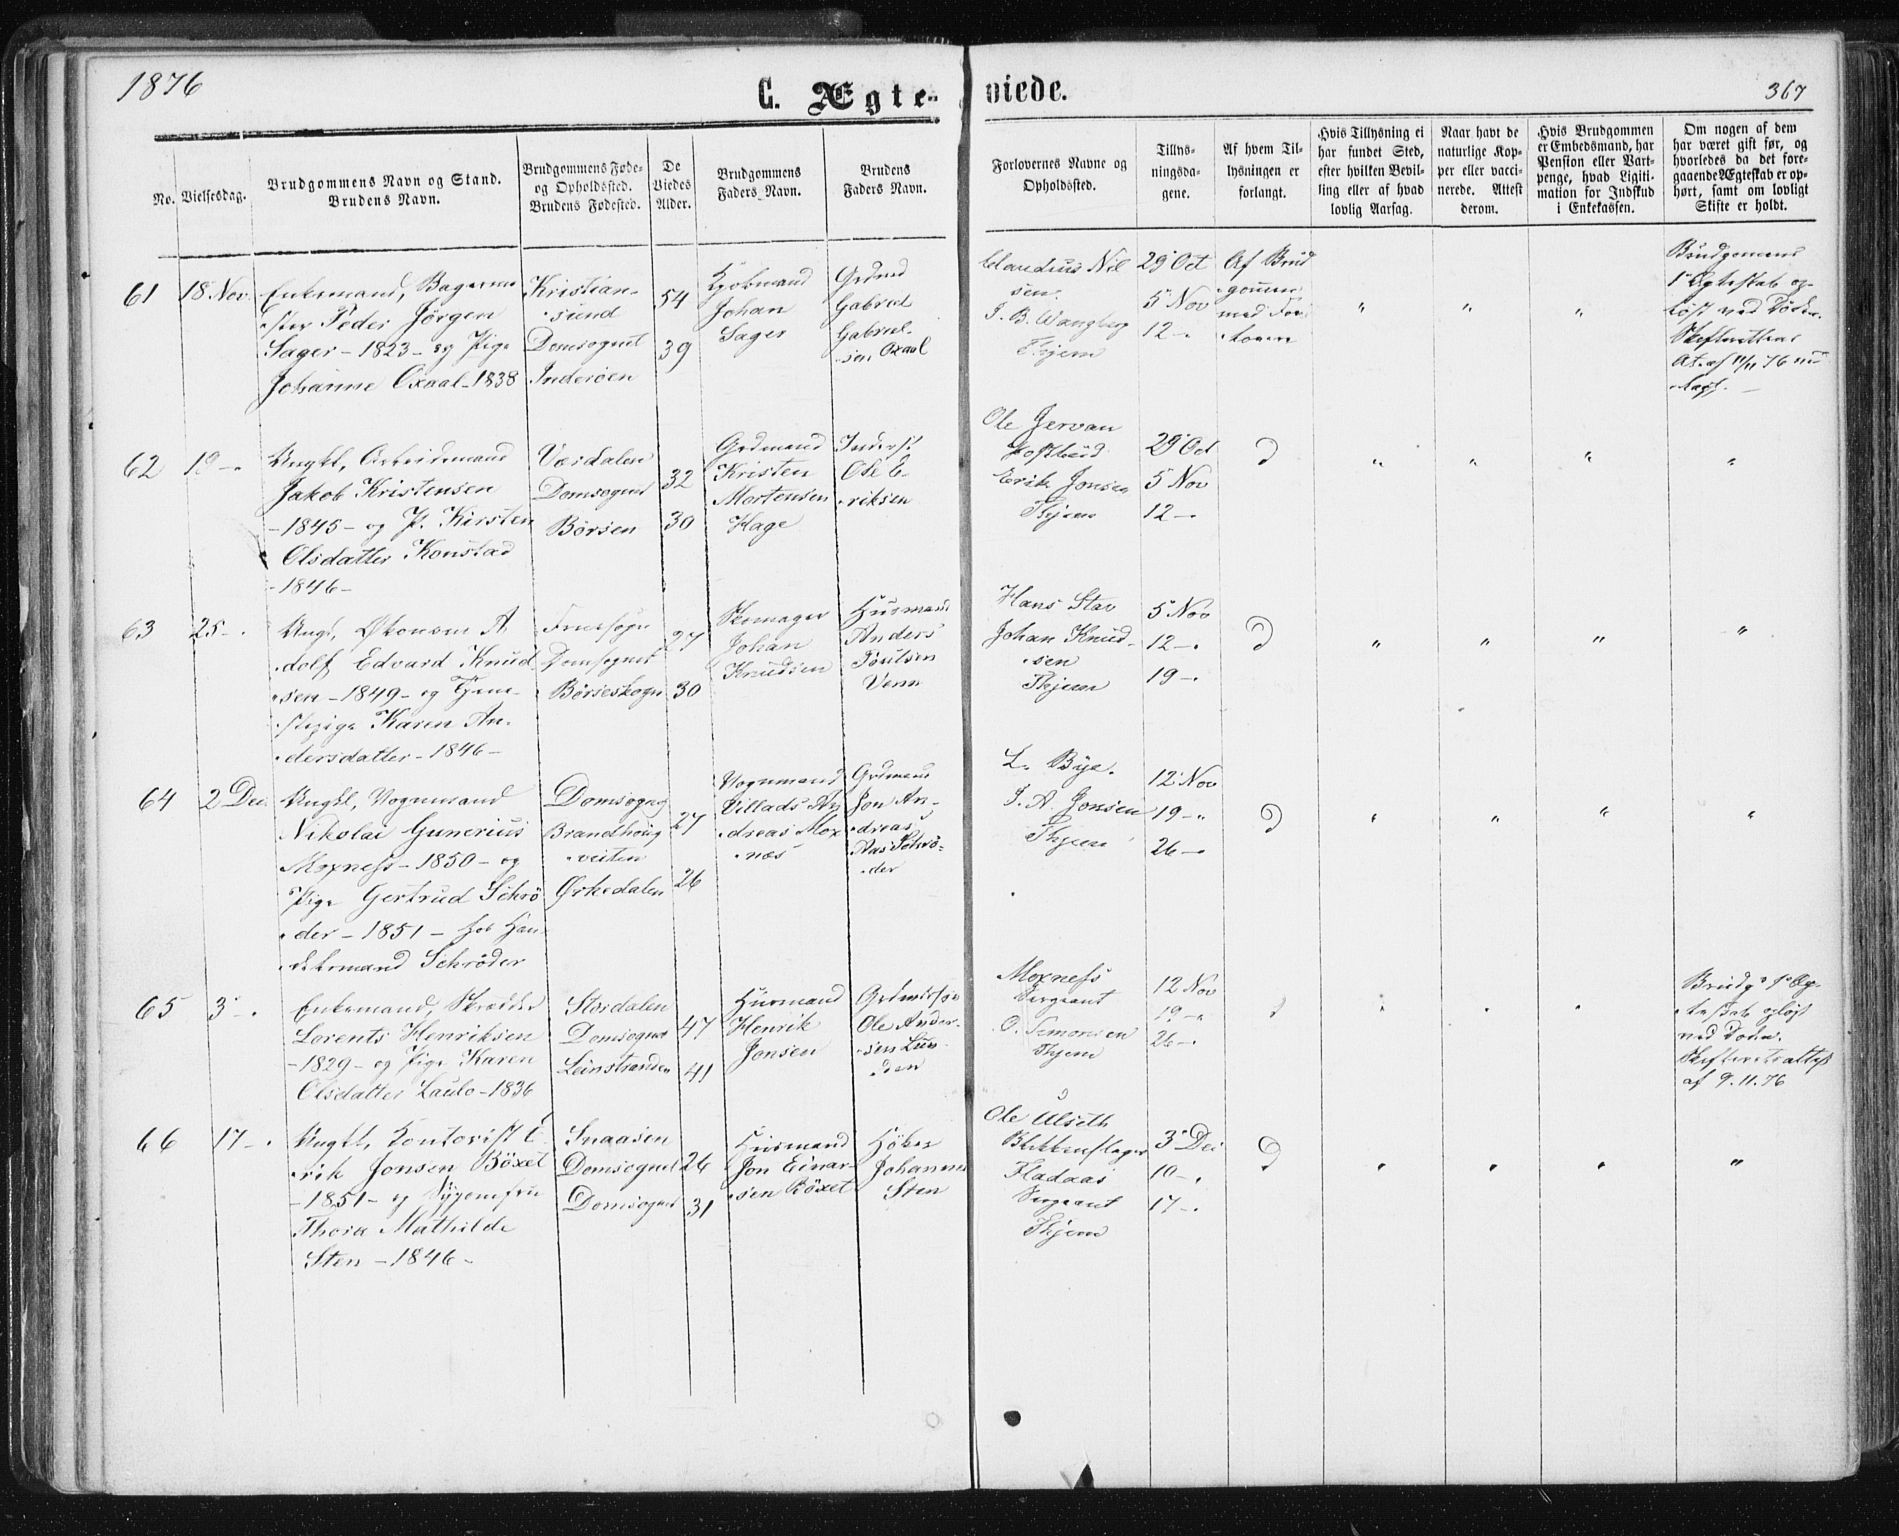 1876
C. Ægte-
viede.
367
No.
Vielsesdag.
Brudgommens Navn og Stand.
Brudens Navn.
Brudgommens Føde-
og Opholdssted.
Brudens Fødested.
De
Viedes
Alder.
Brudgommens
Faders Navn.
Brudens
Faders Navn.
Forlovernes Navne og
Opholdssted.
Tillys-
ningsda-
gene.
Af hvem Til-
lysningen er
forlangt.
Hvis Tillysning ei
har fundet Sted,
efter hvilken Bevil-
ling eller af hvad
lovlig Aarsag.
Naar havt de
naturlige Kop-
per eller vacci-
nerede. Attest
derom.
Hvis Brudgommen
er Embedsmand, har
Pension eller Vart-
penge, hvad Ligiti-
mation for Indskud
i Enkekassen.
Om nogen af dem
har været gift før, og
hvorledes da det fore-
gaaende Ægteskab er op-
hørt, samt om lovligt
Skifte er holdt.
61
18 Nov.
Enkemand, Bagerme
ster Peder Jörgen
Sager - 1823 - og Pige
Johanne Oxaal - 1838
Kristian-
sund
Domsognet
Inderöen
54
39
Kjöbmand
Johan
Sager
Grdmd
Gabriel
Gabriel-
sen Oxaal
Claudius Nil
sen.
J. B. Wangberg
Thjem
29 Oct
5 Nov
12 -
Af Brud
gommen
med For
" " "
Brudgomens
1' Egteskab op-
löst ved Döden.
af 11/11 76
62
19 -
Ungkl, Arbeidsmand
Jakob Kristensen
- 1845 - og P. Kirsten
Olsdatter Konstad
- 1846 -
Værdalen
Domsognet
Börsen
32
30
Grdmand
Kristen
Mortensen
Hage
Inderst
Ole E-
riksen
Ole Jervan
Postbud
Erik Jonsen
Thjem
29 Oct
5 Nov
12 -
" " " "
63
25 -
Ungk, Økonom A
dolf Edvard Knud
sen - 1849 - og Tjene-
stepige Karen An-
dersdatter - 1846 -
Fruesogn
Domsognet
Börseskogn
27
30
Skomager
Johan
Knudsen
Husmand
Anders
Poulsen
Venn
Hans Stav
Johan Knud-
sen
Thjem
5 Nov
12 -
19 -
" " " "
64
2 Dec.
Ungkl, Vognmand
Nikolai Gunerius
Moxness - 1850 - og
Pige Gertrud Schrö
der - 1851 - hos Han
delsmand Schröder
Domsognet
Brandhoug
veiten
Ørkedalen
27
26
Vognmand
Villads An
dreas Mox
næs
Grdmand
Jon An-
dreas
Aas Schrö-
der
L. Bye.
J. A. Jonsen
Thjem
12 Nov
19 -
26 -
" " " "
65
3 -
Enkemand, Skrædder
Lorents Henriksen
- 1829 - og Pige Karen
Olsdatter Laulo - 1836
Stördalen
Domsognet
Leinstranden
47
41
Husmand
Henrik
Jonsen
Ole Ander-
sen Lun
den
Moxness
Sergeant
O. Simonsen
Thjem
12 Nov
19 -
26 -
" " "
Brudg' 1' Eg-
teskab oplöst
ved Döden.
af 9.11.76
66
17 -
Ungkl, Kontorist E
rik Jonsen Böxet
- 1851 - og
Thora Mathilde
Sten - 1846 -
Snaasen
Domsognet
Domsognet
26
31
Husmand
Jon Einar-
sen Böxet
Höker
Johannes
Sten
Ole Ulseth
Blikkenslager
Fladaas
Sergeant
Thjem
3 Dec
10 -
17 -
" " " "